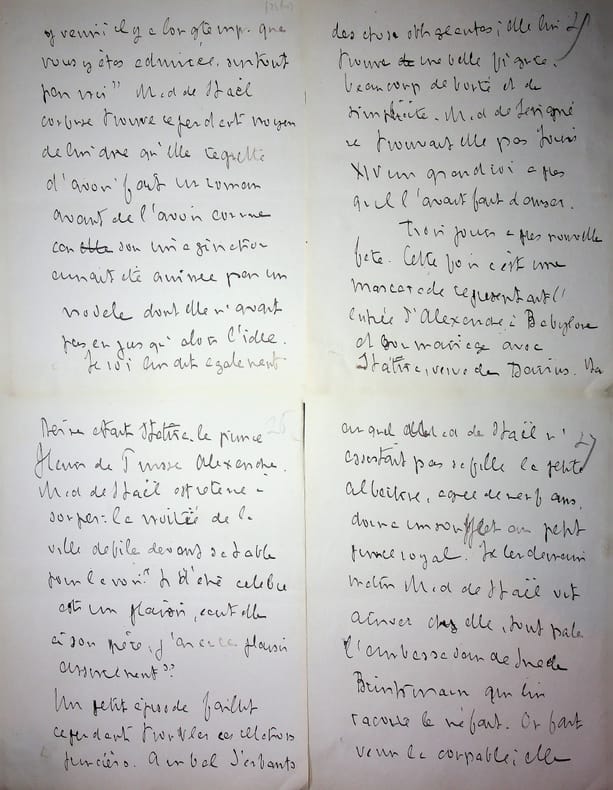 y venir il y a longtemps que
vous y êtes admirée surtout
par moi" Md de Staël
confuse trouve cependant moyen
de lui dire qu'elle regrette
d'avoir fait un roman
avant de l'avoir connue
car elle son imagination
aurait été animée par un
modèle dont elle n'avait
pas jusqu'alors l'idée.
Le roi lui dit également
25
des choses obligeantes; elle lui
trouve de une belle figure
beaucoup de bonté et de
simplicité. Md de Sévigné
ne trouvait elle pas Louis
XIV un grand roi après
qu'il l'avait fait danser.
Trois jours après nouvelle
fête. Cette fois c'est une
mascarade représentant l'
entrée d'Alexandre à Babylone
et son mariage avec
Statira, veuve de Darius. La
26
Reine était Statira le prince
Henri de Prusse Alexandre.
Md de Staël est retenue à
souper. la moitié de la
ville défile devant sa table
pour la voir. " d'être célèbre
est un plaisir, écrit elle
à son père, j'ai ce plaisir
assurément"
Un petit épisode faillit
cependant troubler ces
princiers. A un bal d'enfants
27
auquel Md de Staël n'
assistait pas sa fille la petite
Albertine, agée de neuf ans,
donna un soufflet au petit
prince royal. Le lendemain
matin Md de Staël vit
arriver chez elle, tout pâle
l'ambassadeur de Suède
Brinkmann qui lui
raconta le méfait. On fait
venir la coupable; elle